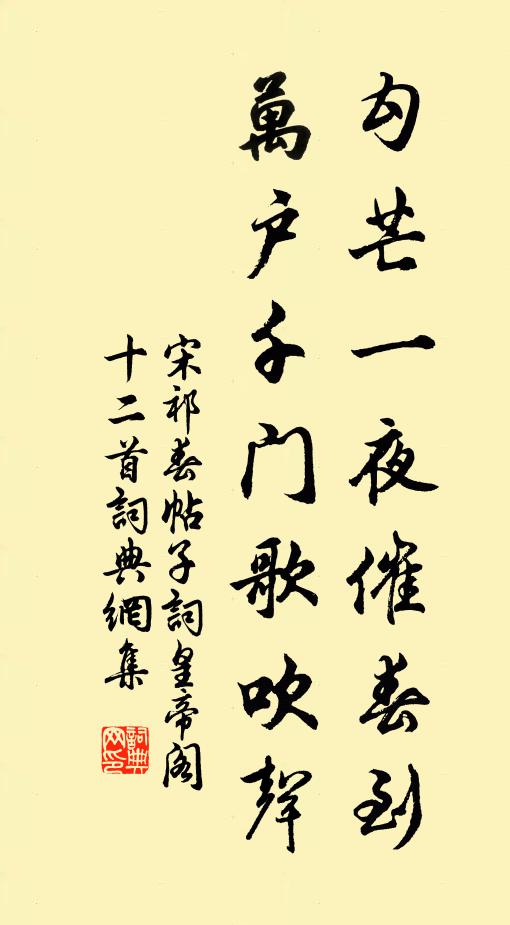 勾芒一夜催春到
萬户千门歌吹聲
宋祁春帖子詞皇帝阁
十二首詞典網集
詞典網印